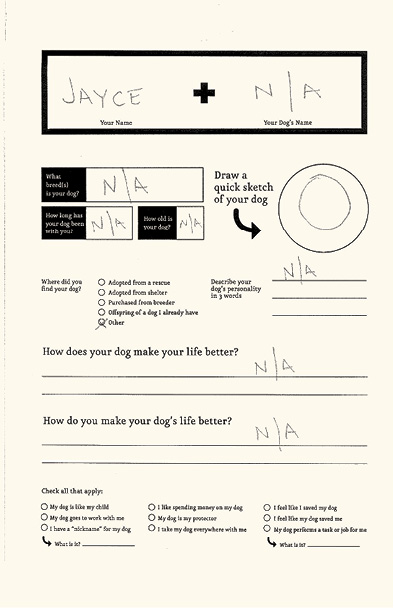 JAYCE + N/A
Your Name Your Dog's Name
What breed(s) is your dog? N/A
How long has your dog been with you? N/A
How old is your dog? N/A
Draw a
quick sketch
of your dog
Where did you
find your dog?
Adopted from a rescue
Adopted from shelter
Purchased from breeder
Offspring of a dog I already have
Other
Describe your
dog's personality
in 3 words
N/A
How does your dog make your life better?
N/A
How do you make your dog's life better?
N/A
Check all that apply:
My dog is like my child
My dog goes to work with me
I have a "nickname" for my dog
What is it?
I like spending money on my dog
My dog is my protector
I take my dog everywhere with me
I feel like I saved my dog
I feel like my dog saved me
My dog performs a task or job for me
What is it?